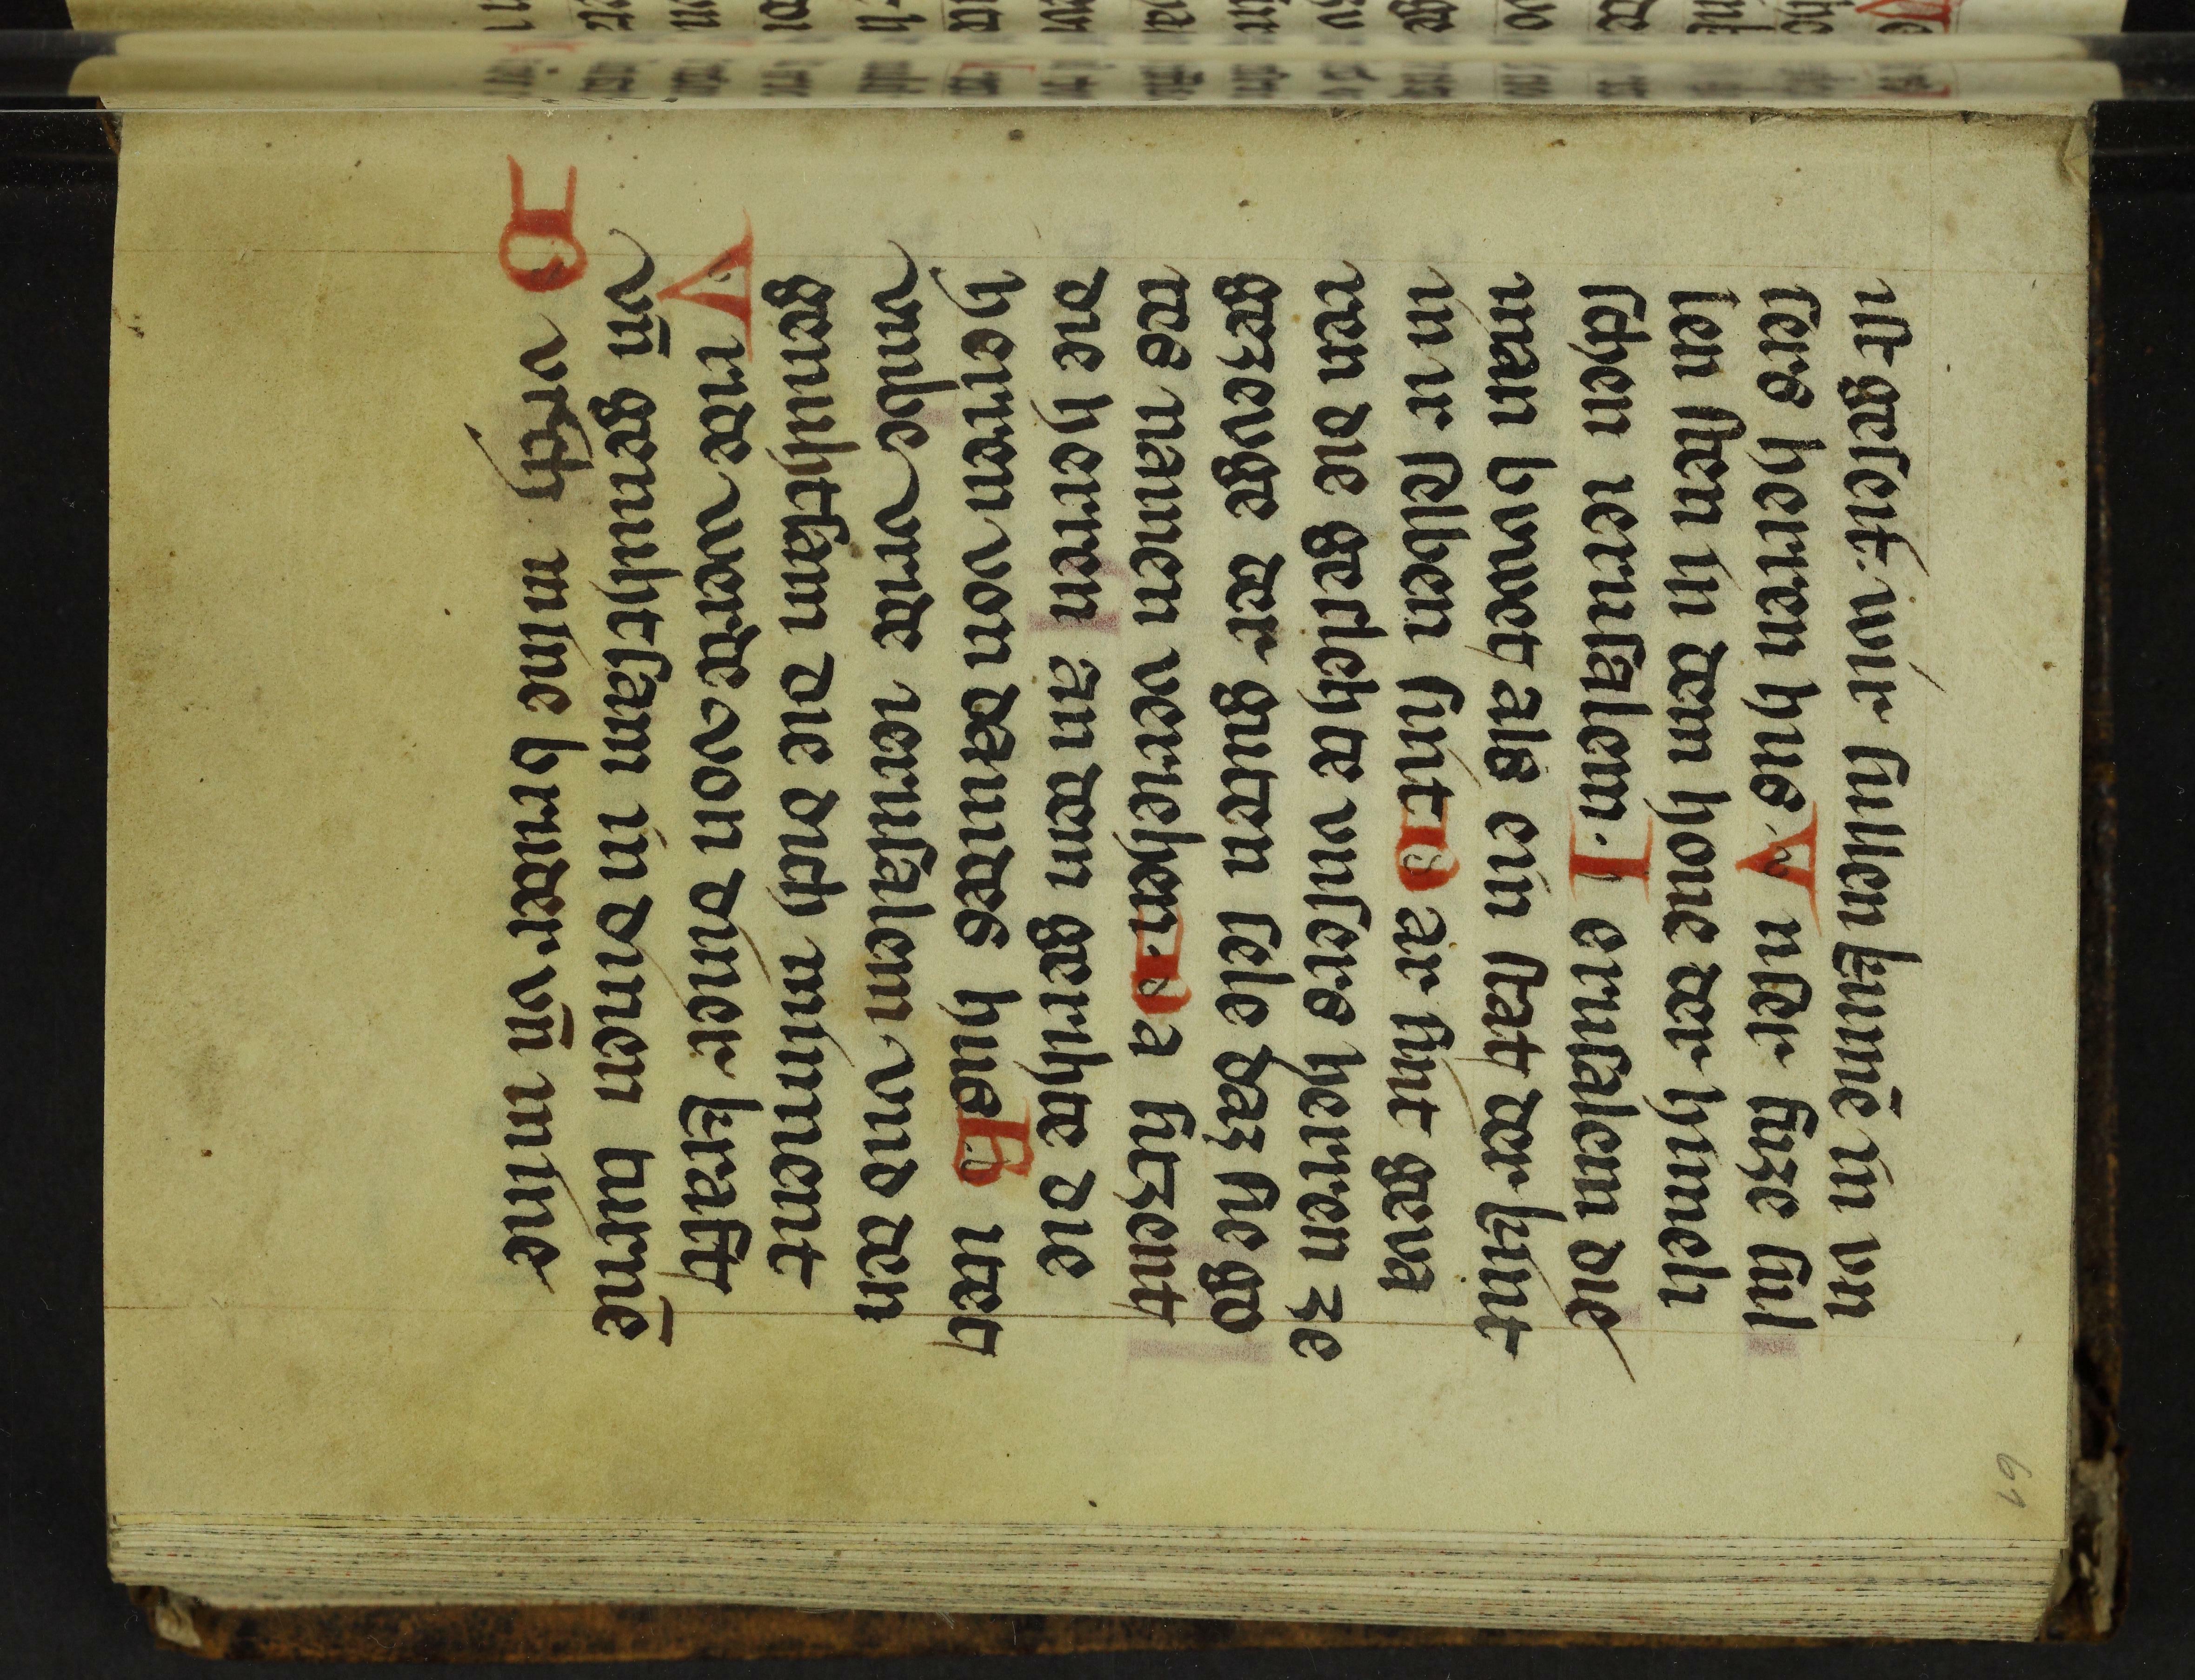 ist geseit. wir sulen kumē in vn
sers herren hus. Vnser fuze sul
len sten in dem houe der himeli
schen ierusalem. Ierusalem die
man bvwet als ein stat der kunt
in ir selben sint. Dar sint geva
ren die geslehte vnsers herren ze
gezevge der guten sele daz sie go
tes namen veriehen. Da sitzent
die herren an dem gerihte die
herren von dauides hus. Bitet
vmbe vride ierusalem vnd den
genuhtsam die dich minnent
Vride werde von diner kraft
vn̄ genuhtsam in dinen turnē
Dvrch mine bruder vn̄ mine
61